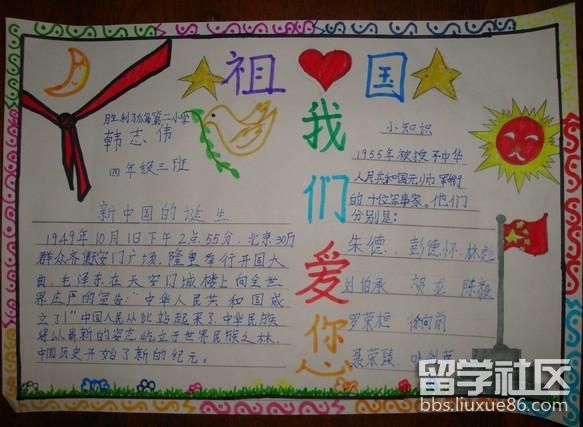 祖国
我们爱你
韩志伟
四年级三班
新中国的诞生
1949年10月1日下午2点55分,北京30万
群众齐集安门广场,隆重举行开国大
典,毛泽东在天安门城楼上向全世
界庄严的宣告:“中华人民共和国成
立了!”中国人民从此站起来了,中华民族
将以崭新的姿态屹立于世界民族之林,
中国历史开始了新的纪元。
小知识
1955年被授予中华
人民共和国元帅军衔
的十位军事家。他们
分别是:
朱德、彭德怀、林彪
刘伯承 贺龙 陈毅
罗荣桓 徐向前
聂荣臻
留学社区
bbs.liuxue86.com